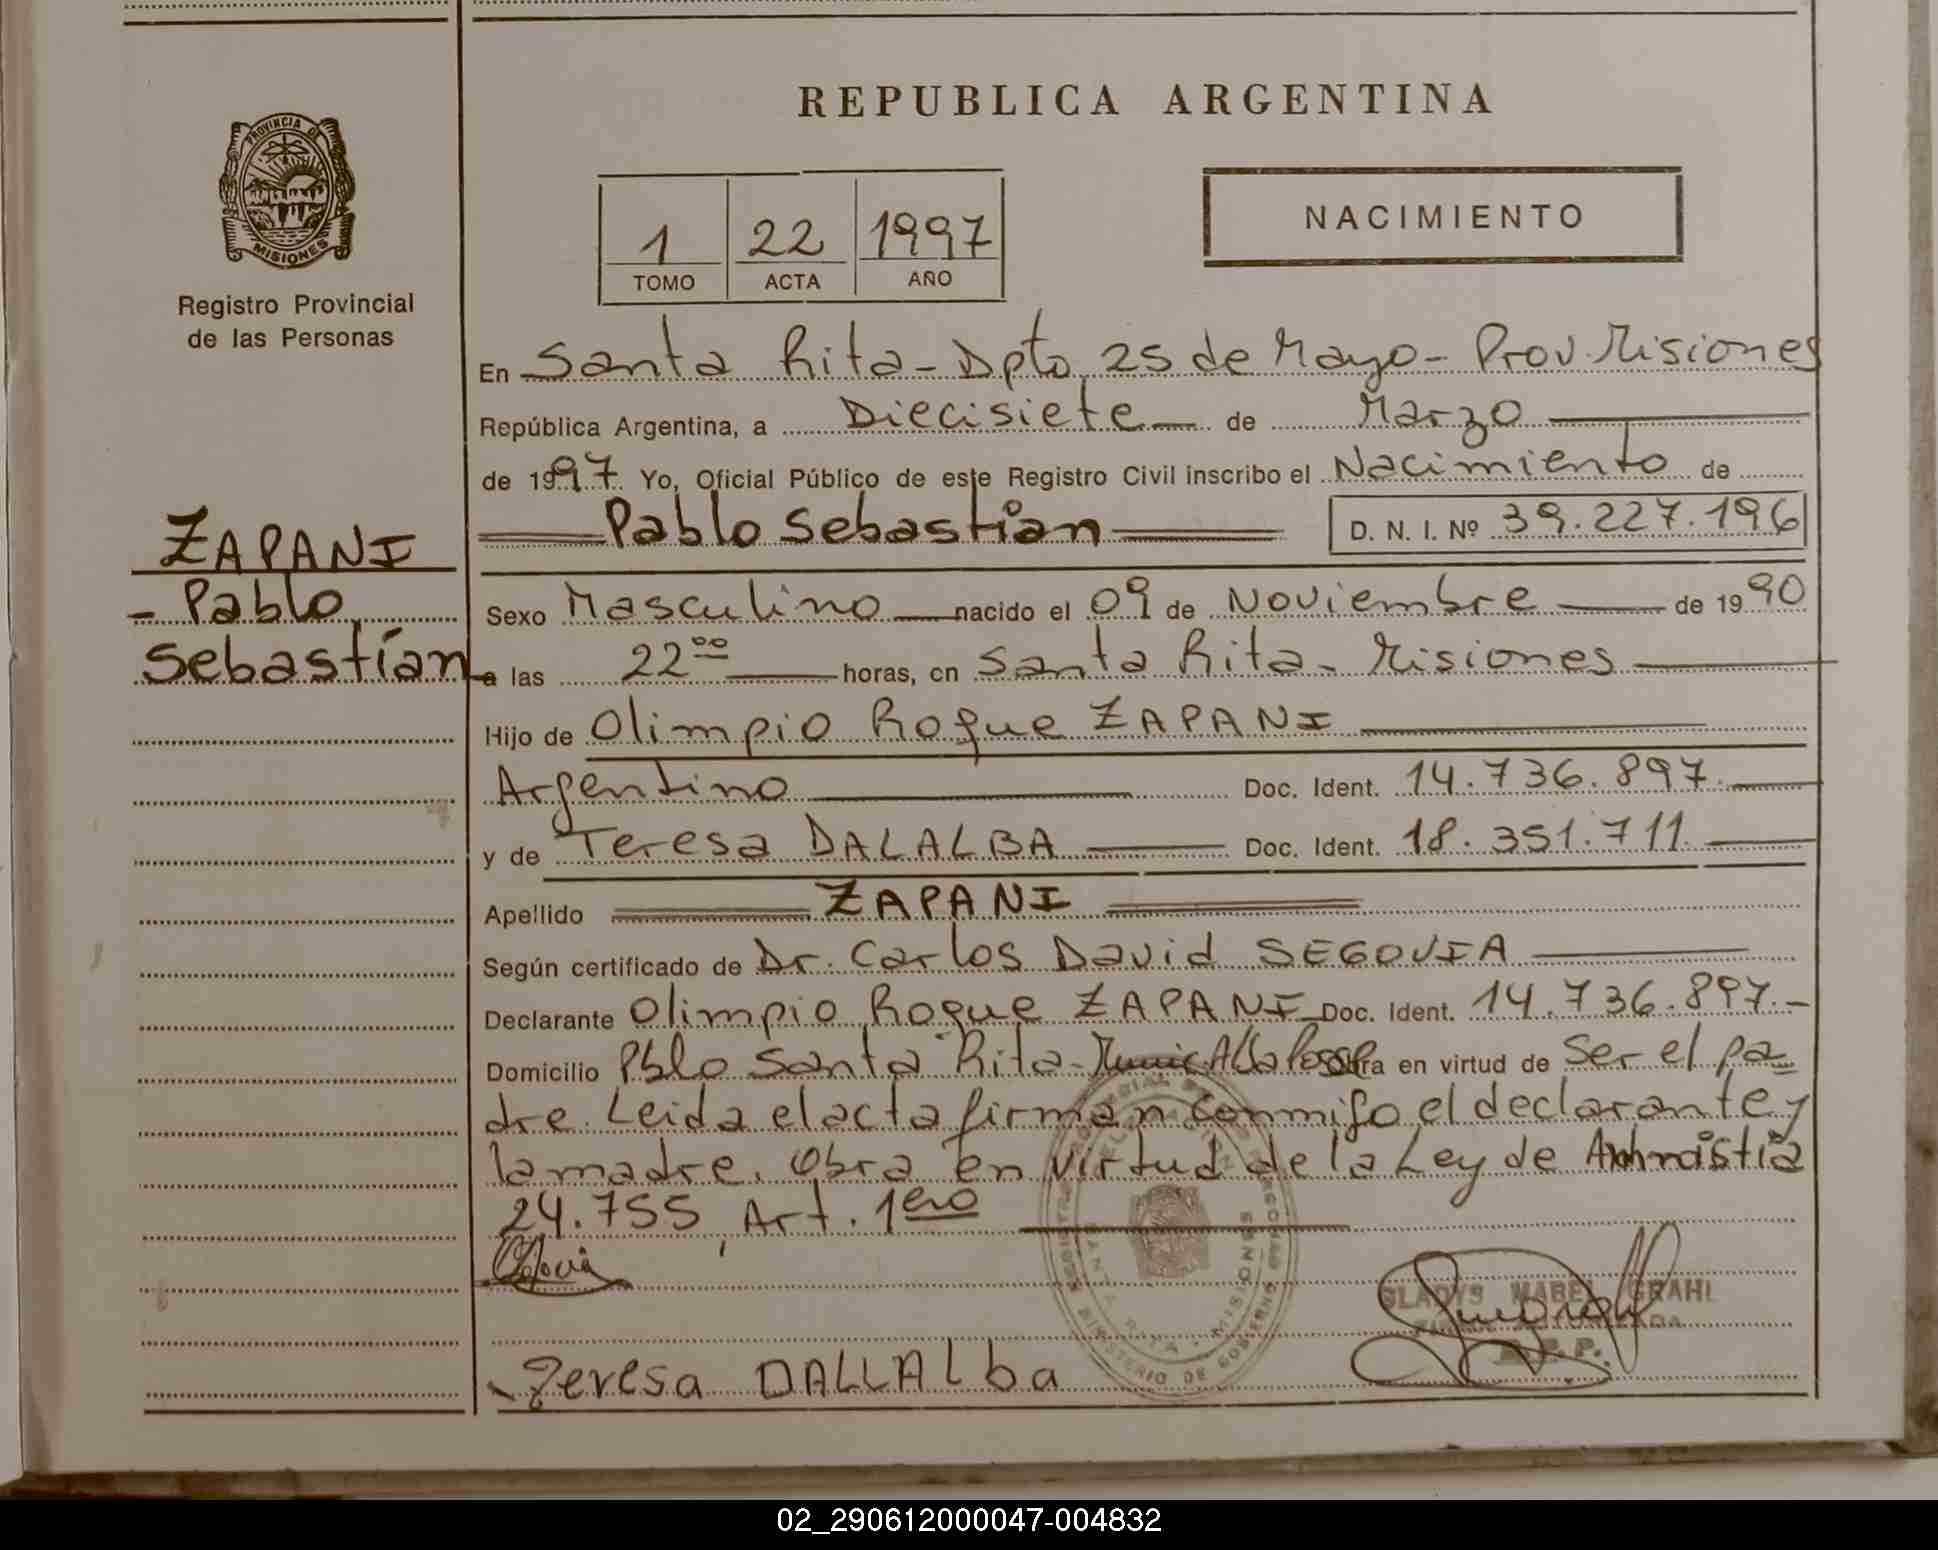 REPUBLICA ARGENTINA
PROVINCIA DE
MISIONES
Registro Provincial
de las Personas
1 22 1997
TOMO ACTA AÑO
NACIMIENTO
ZAPANI
- Pablo
Sebastían
En Santa Rita - Dpto 25 de Mayo - Prov. Misiones
República Argentina, a Diecisiete de Marzo
de 1997 Yo, Oficial Público de este Registro Civil inscribo el Nacimiento de
Pablo Sebastían D. N. I. Nº 39.227.196
Sexo Masculino nacido el 09 de Noviembre de 1990
a las 22 00 horas, en Santa Rita - Misiones
Hijo de Olimpio Roque ZAPANI
Argentino Doc. Ident. 14.736.897.
y de Teresa DALALBA Doc. Ident. 18.351.711.
Apellido ZAPANI
Según certificado de Dr. Carlos David SEGOVIA
Declarante Olimpio Roque ZAPANI Doc. Ident. 14.736.897.-
Domicilio Pblo Santa Rita - Alba Posse Obra en virtud de Ser el pa-
dre. Leida el acta firman conmigo el declarante y
la madre. Obra en virtud de la Ley de Amnistia
24.755, Art. 1ero
GLADYS MABEL GRAHL
Teresa DALLALba
SANTA RITA - MISIONES
MINISTERIO DE GOBIERNO
02_290612000047-004832